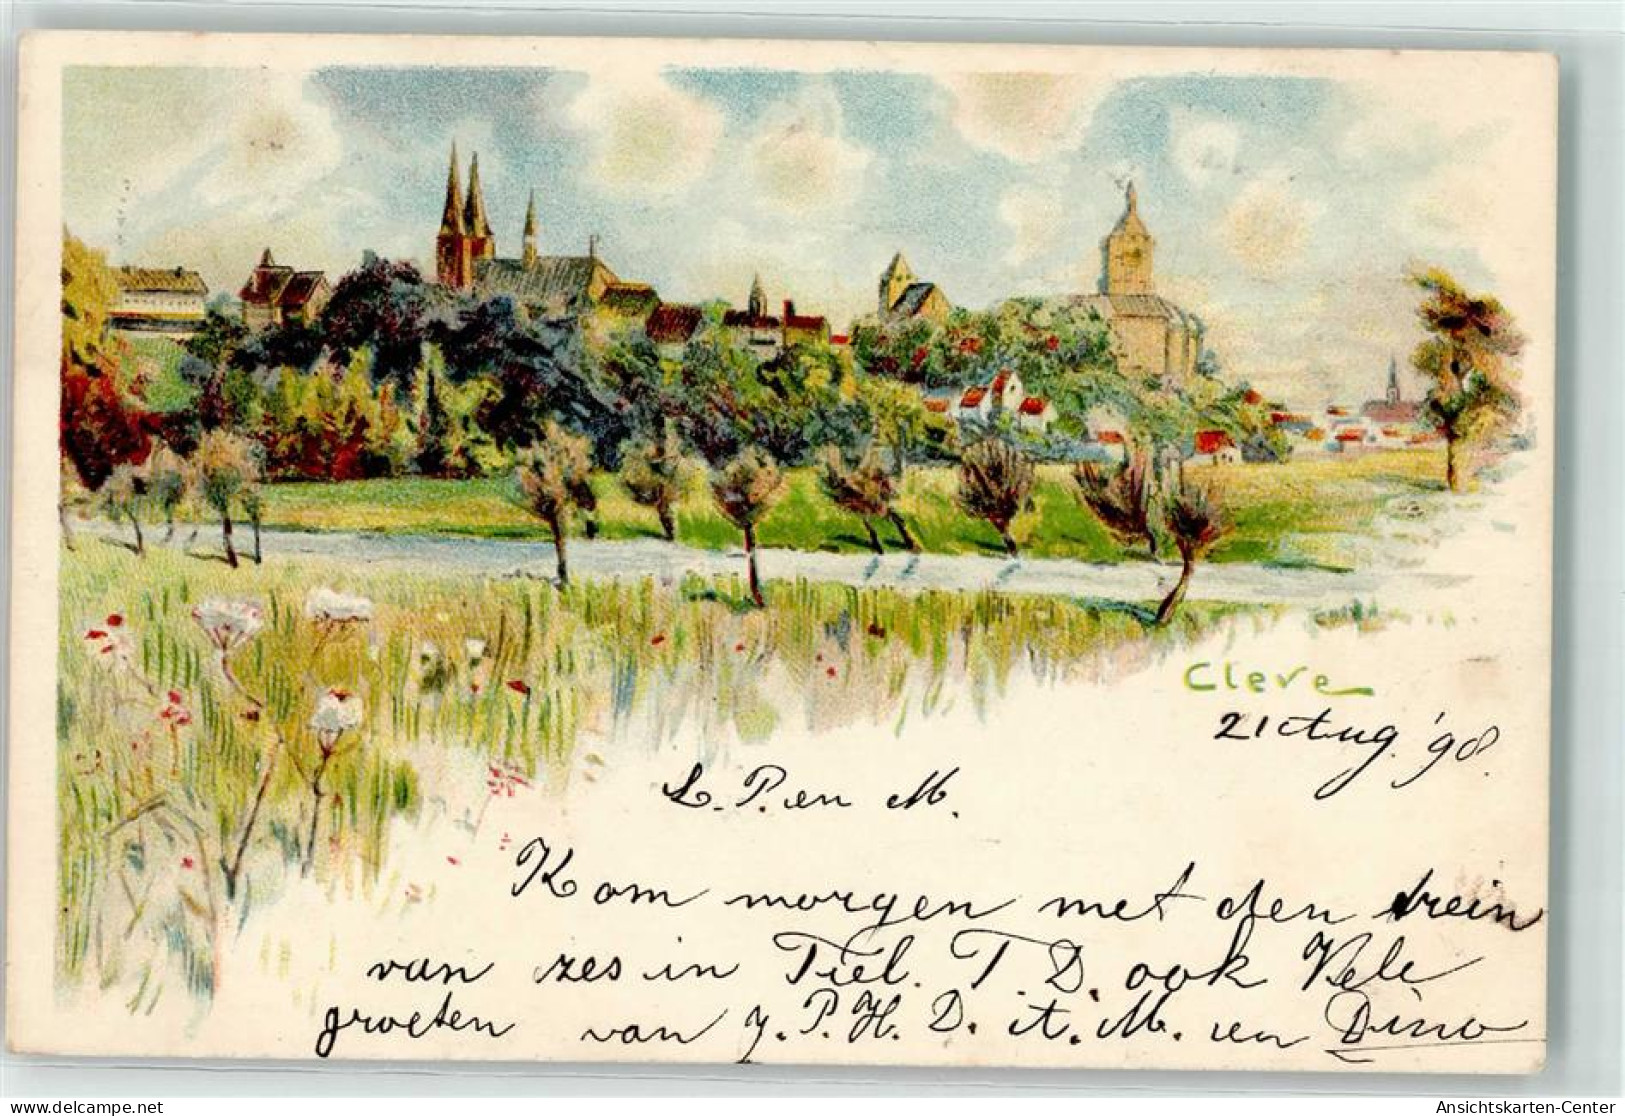 Cleve
21 Aug. '98.
L. P. en M.
Kom morgen met den trein
van zes in Tiel. T. D. ook Vele
groeten van J. P. H. D. A. M. en Dino
hippostcard.com
Ansichtskarten-Center